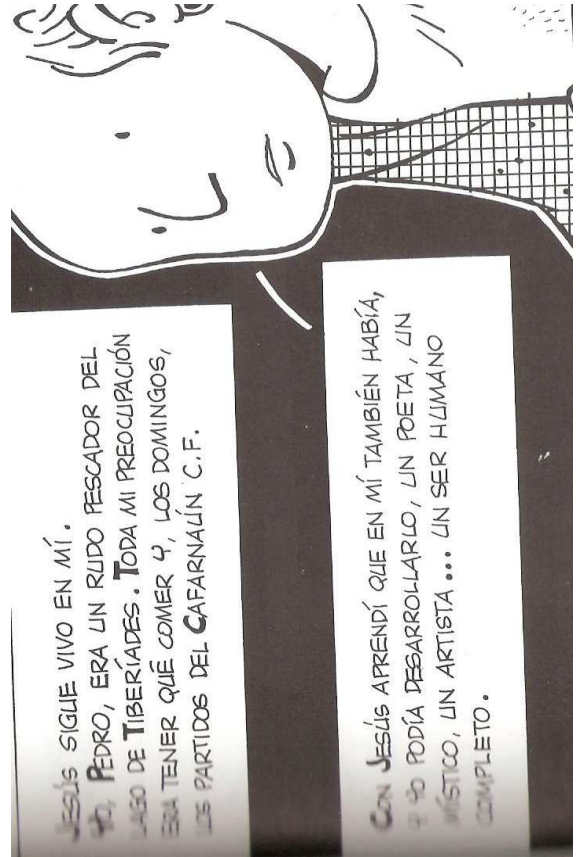 JESÚS SIGUE VIVO EN MÍ.
YO, PEDRO, ERA UN RUDO PESCADOR DEL
LAGO DE TIBERÍADES. TODA MI PREOCUPACIÓN
ERA TENER QUÉ COMER Y, LOS DOMINGOS,
LOS PARTIDOS DEL CAFARNAÚN C.F.
CON JESÚS APRENDÍ QUE EN MÍ TAMBIÉN HABÍA,
Y YO PODÍA DESARROLLARLO, UN POETA, UN
MÍSTICO, UN ARTISTA... UN SER HUMANO
COMPLETO.